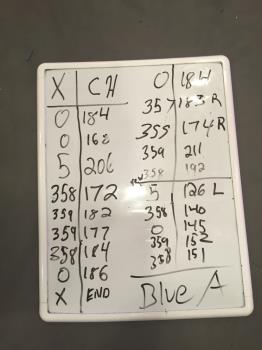 X CH
0 184
0 168
5 206
358 172
359 182
359 177
358 184
0 186
X END
0 184
357 183 R
355 174 R
359 211
358 192
5 126 L
358 140
0 145
359 152
358 151
Blue A